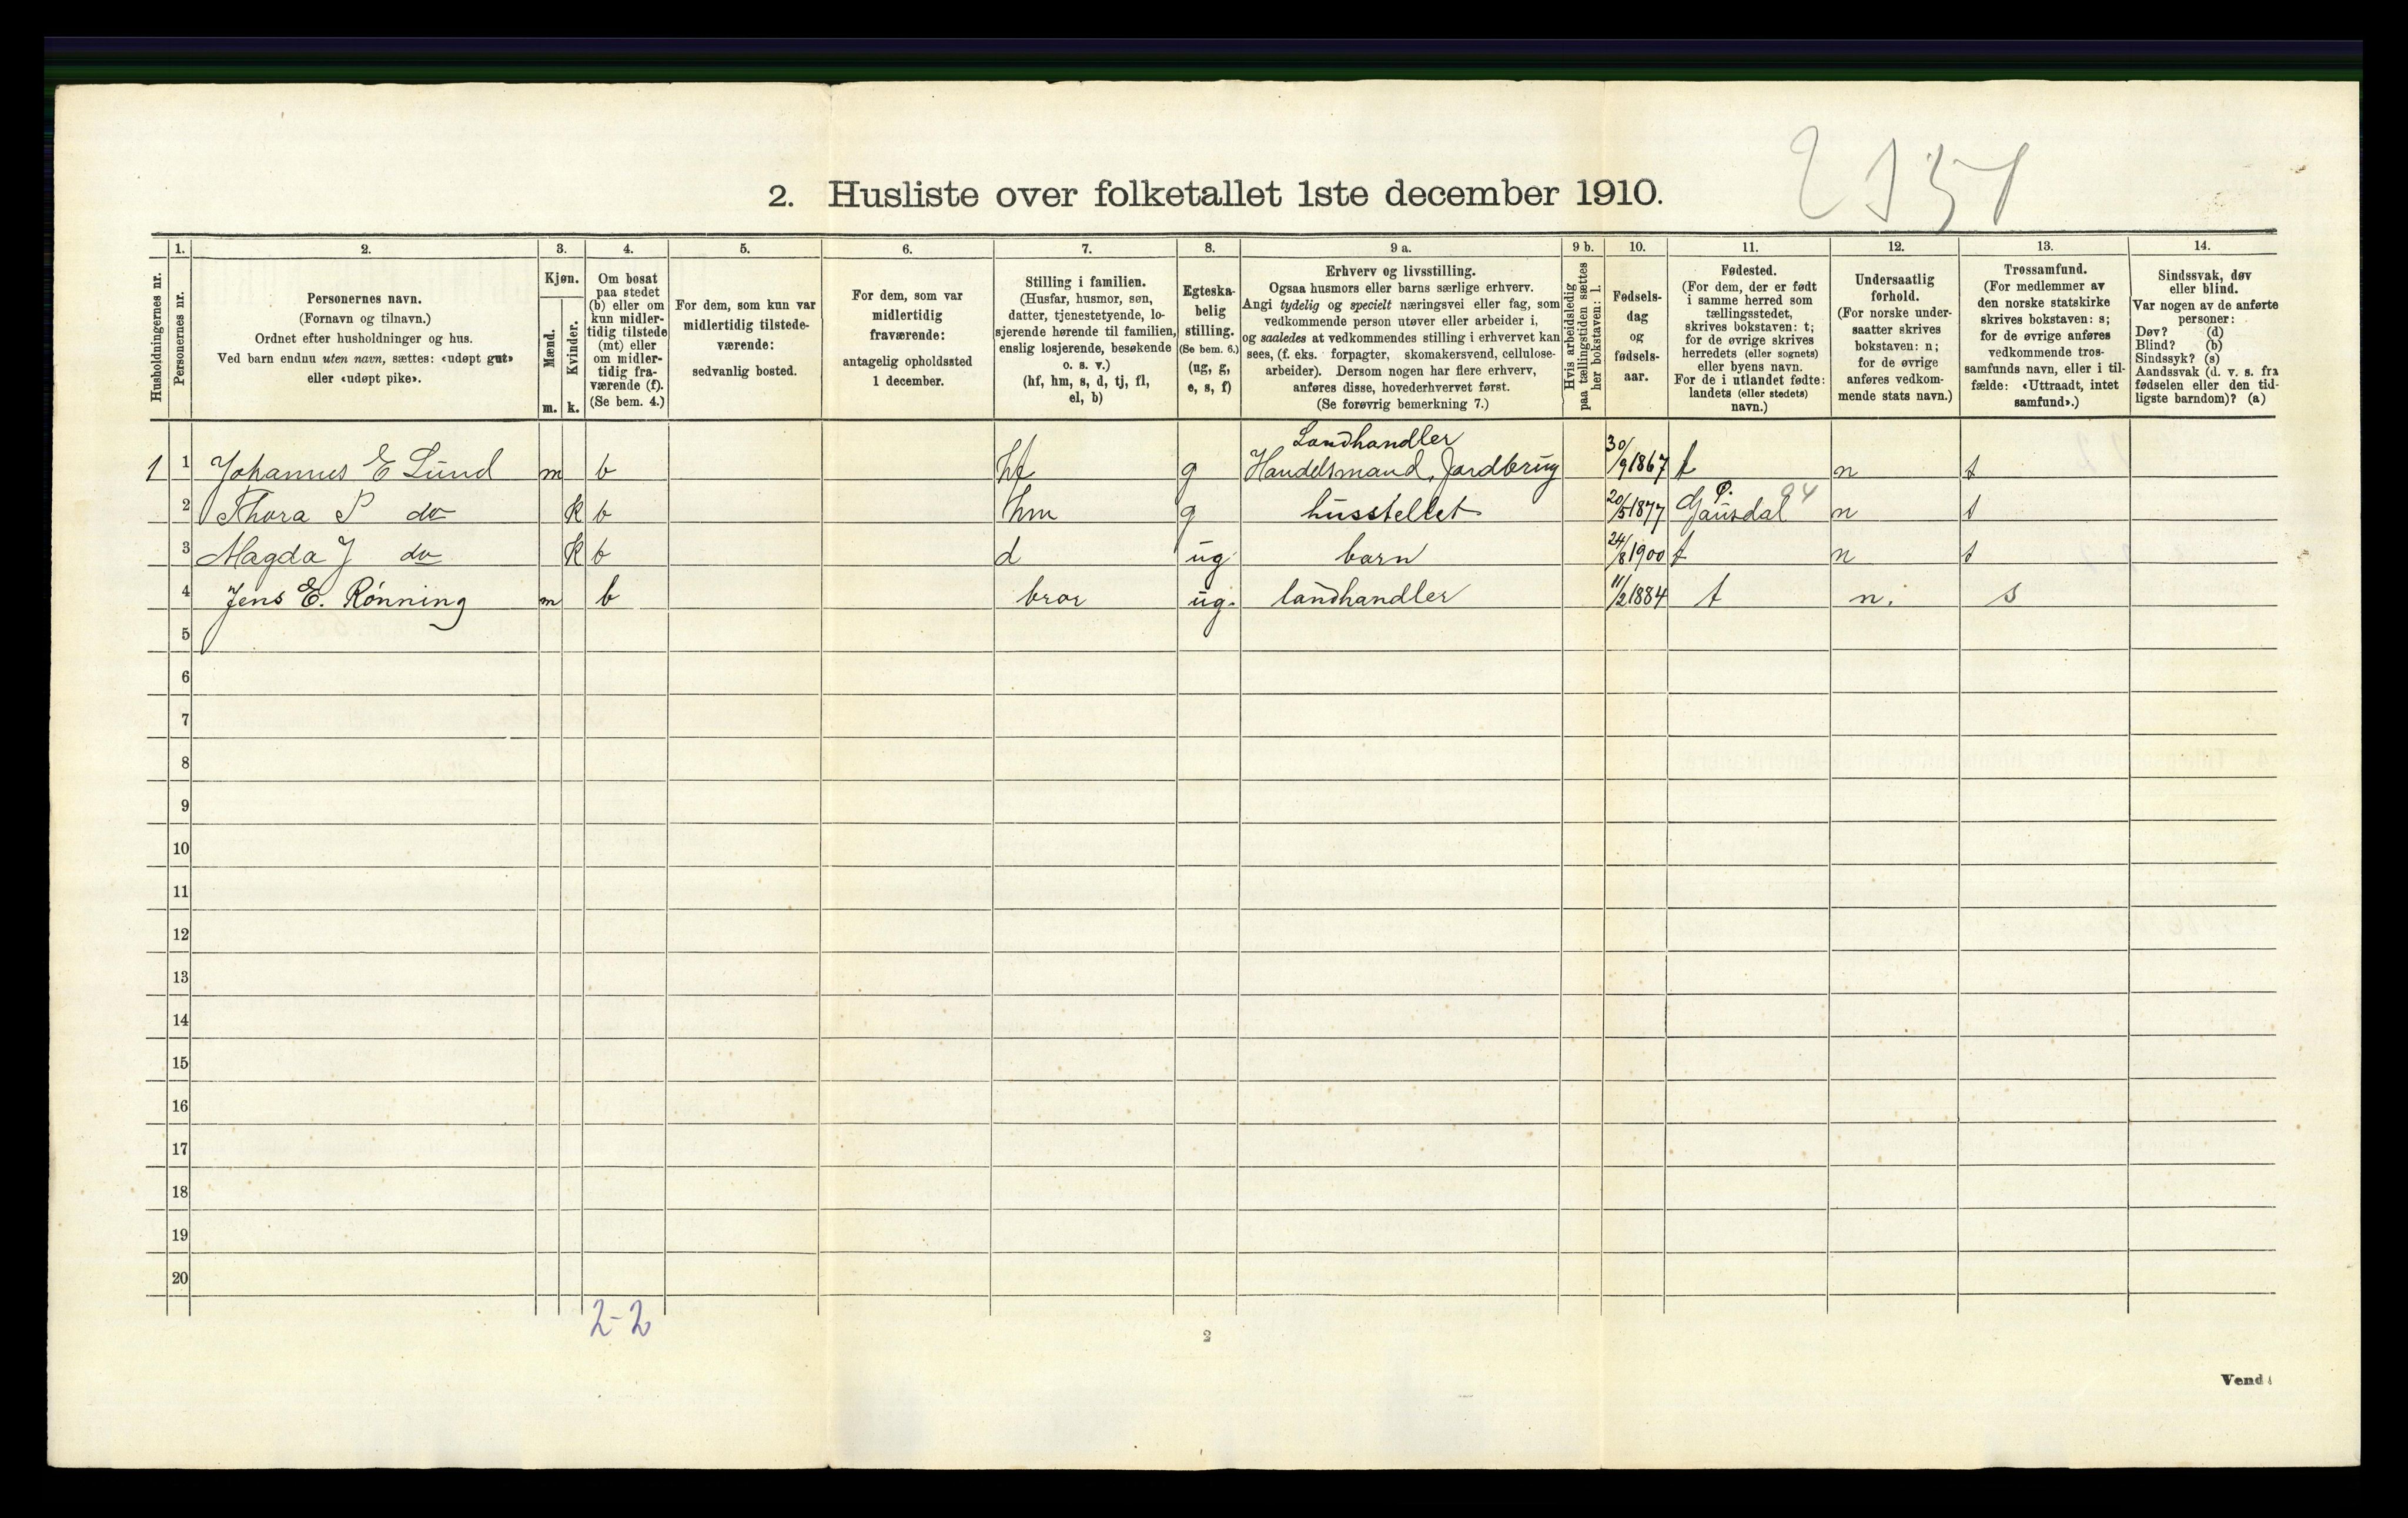 2. Husliste over folketallet 1ste december 1910.
1. 2. 3. 4. 5. 6. 7. 8. 9 a. 9 b. 10. 11. 12. 13. 14.
Husholdningernes nr.
Personernes nr.
Personernes navn.
(Fornavn og tilnavn.)
Ordnet efter husholdninger og hus.
Ved barn endnu uten navn, sættes: «udøpt gut»
eller «udøpt pike».
Kjøn.
Mænd.
Kvinder.
m. k.
Om bosat
paa stedet
(b) eller om
kun midler-
tidig tilstede
(mt) eller
om midler-
tidig fra-
værende (f).
(Se bem. 4.)
For dem, som kun var
midlertidig tilstede-
værende:
sedvanlig bosted.
For dem, som var
midlertidig
fraværende:
antagelig opholdssted
1 december.
Stilling i familien.
(Husfar, husmor, søn,
datter, tjenestetyende, lo-
sjerende hørende til familien,
enslig losjerende, besøkende
o. s. v.)
(hf, hm, s, d, tj, fl,
el, b)
Egteska-
belig
stilling.
(Se bem. 6.)
(ug, g,
e, s, f)
Erhverv og livsstilling.
Ogsaa husmors eller barns særlige erhverv.
Angi tydelig og specielt næringsvei eller fag, som
vedkommende person utøver eller arbeider i,
og saaledes at vedkommendes stilling i erhvervet kan
sees, (f. eks. forpagter, skomakersvend, cellulose-
arbeider). Dersom nogen har flere erhverv,
anføres disse, hovederhvervet først.
(Se forøvrig bemerkning 7.)
Hvis arbeidsledig
paa tællingstiden sættes
her bokstaven: l.
Fødsels-
dag
og
fødsels-
aar.
Fødested.
(For dem, der er født
i samme herred som
tællingsstedet,
skrives bokstaven: t;
for de øvrige skrives
herredets (eller sognets)
eller byens navn.
For de i utlandet fødte:
landets (eller stedets)
navn.)
Undersaatlig
forhold.
(For norske under-
saatter skrives
bokstaven: n;
for de øvrige
anføres vedkom-
mende stats navn.)
Trossamfund.
(For medlemmer av
den norske statskirke
skrives bokstaven: s;
for de øvrige anføres
vedkommende tros-
samfunds navn, eller i til-
fælde: «Uttraadt, intet
samfund».)
Sindssvak, døv
eller blind.
Var nogen av de anførte
personer:
Døv? (d)
Blind? (b)
Sindssyk? (s)
Aandssvak (d. v. s. fra
fødselen eller den tid-
ligste barndom)? (a)
Landhandler
1 1 Johannes E Lund m b hf g Handelsmand, Jordbrug 30/9 1867 t n s
2 Thora P do k b hm g husstellet 20/5 1877 Gausdal 94 n s
3 Magda J do k b d ug barn 24/8 1900 t n s
4 Jens E. Rønning m b bror ug. landhandler 11/2 1884 t n. s
5
6
7
8
9
10
11
12
13
14
15
16
17
18
19
20
2-2
2
Vend